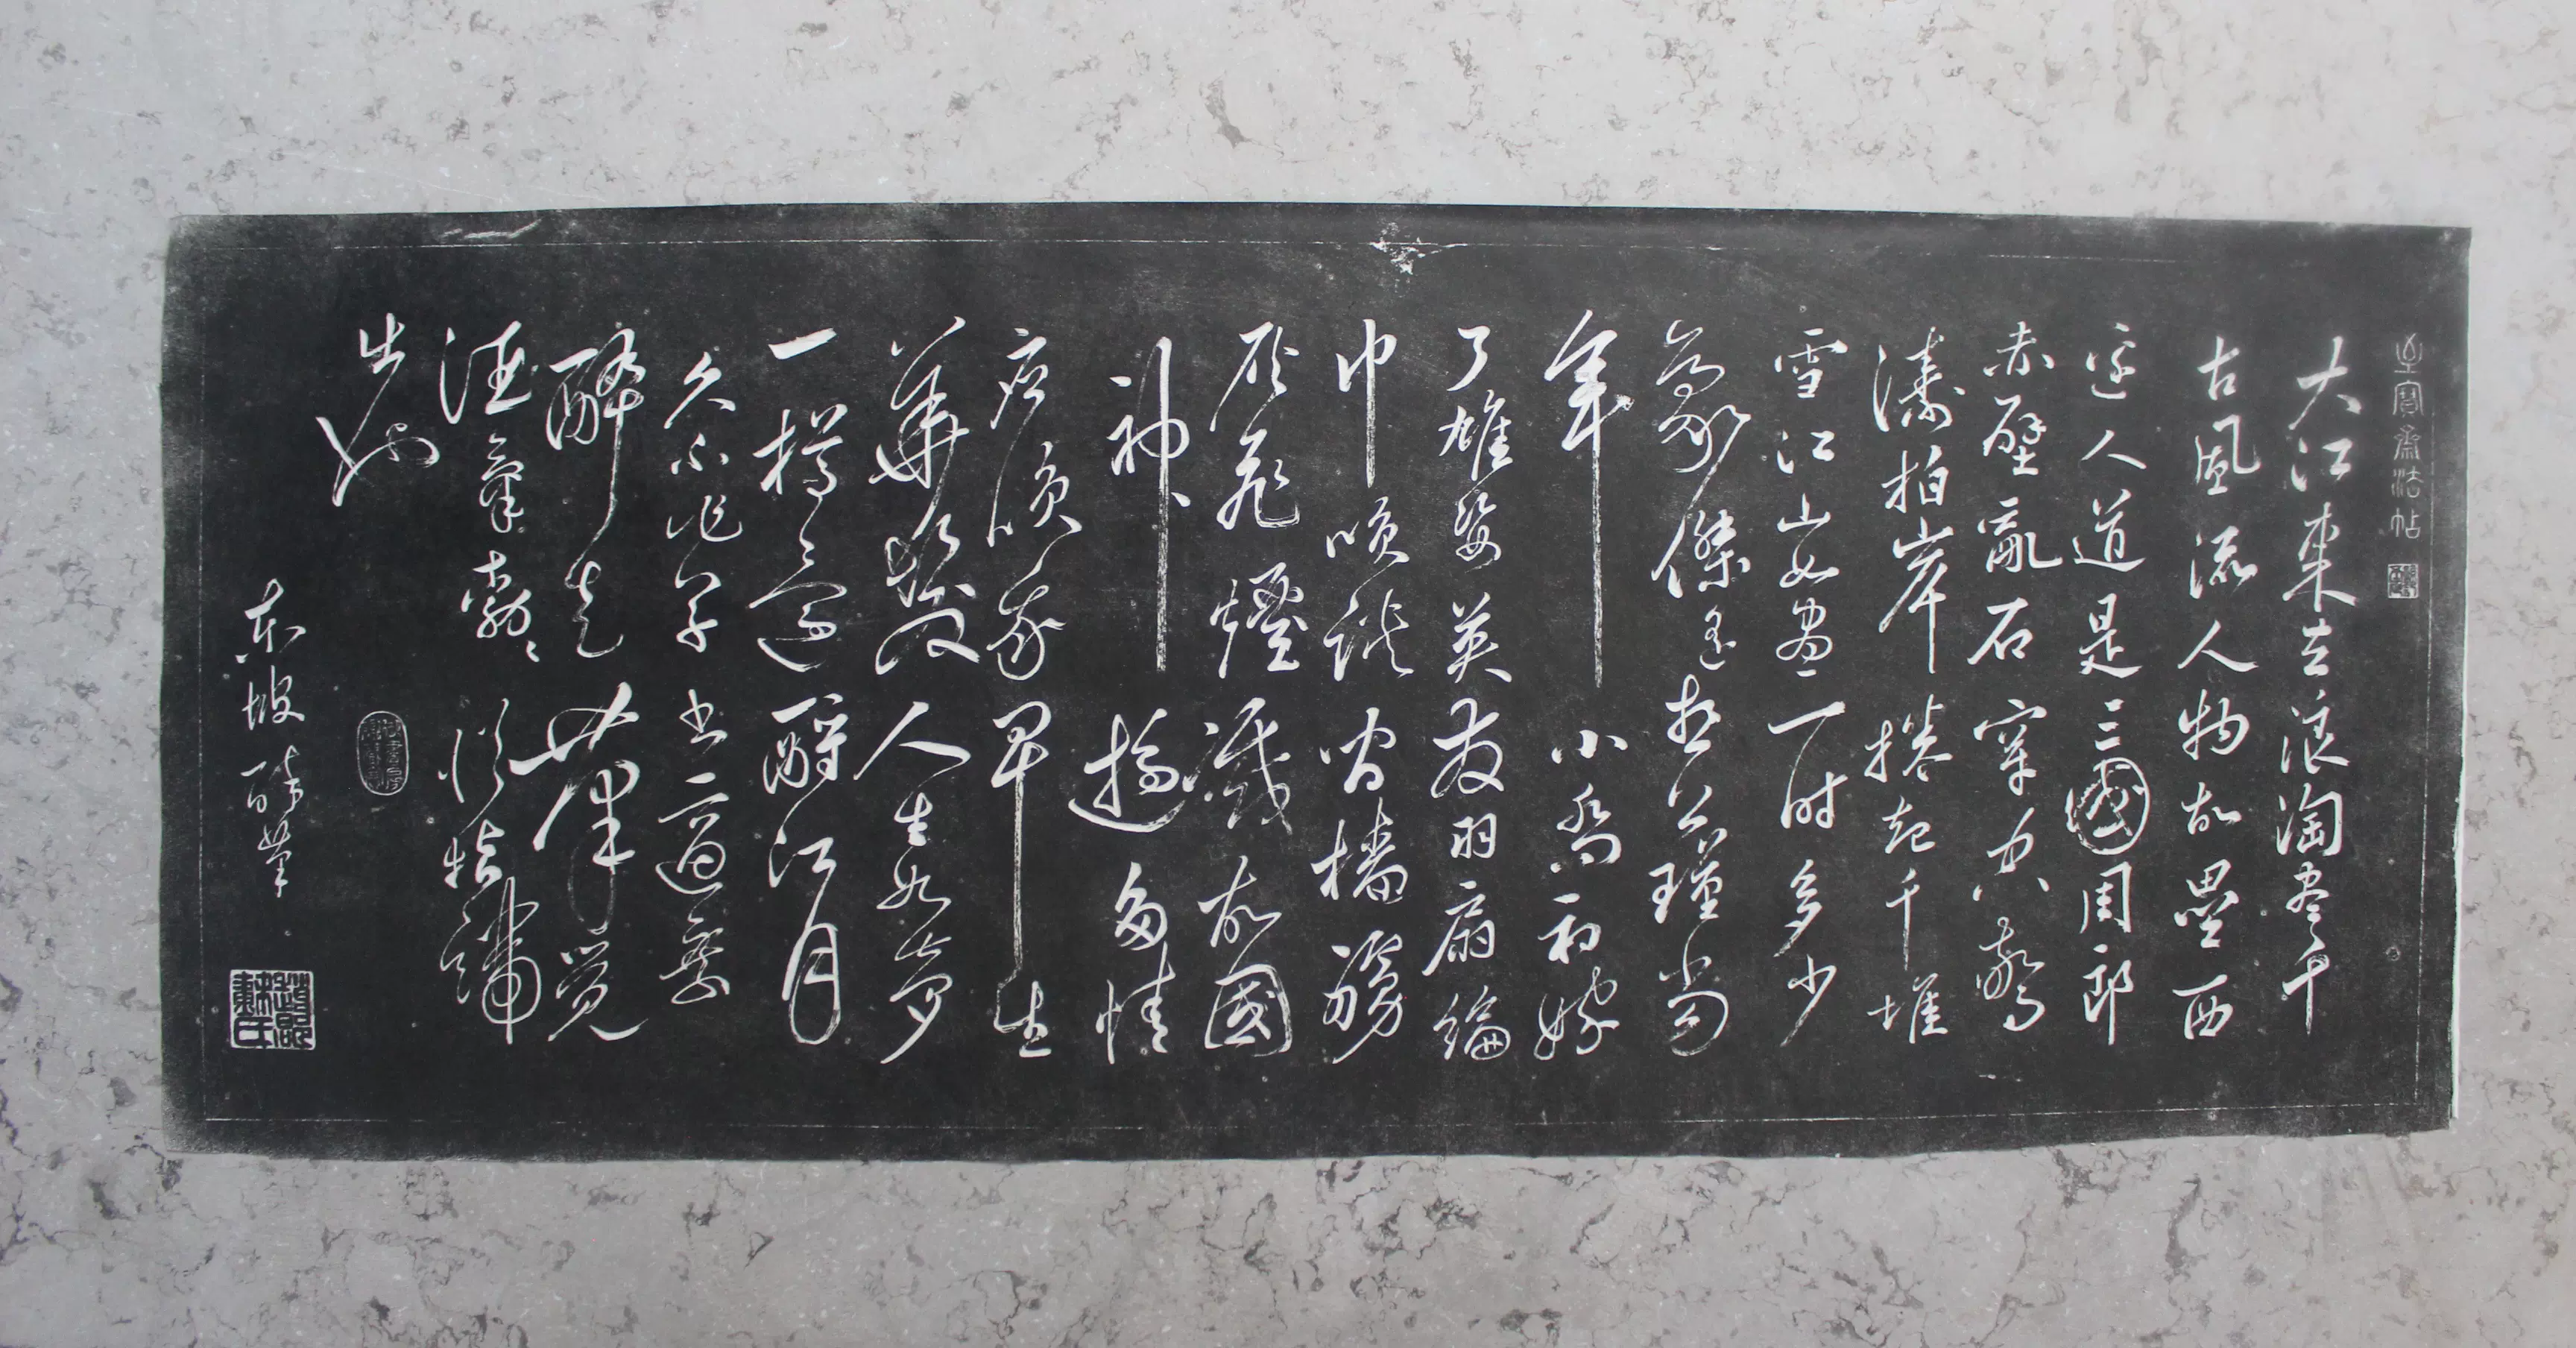 至寶齋法帖
大江東去浪淘盡千
古風流人物故壘西
邊人道是三國周郎
赤壁亂石穿空驚
濤拍岸捲起千堆
雪江山如畫一時多少
豪傑遙想公瑾當
年小喬初嫁
了雄姿英發羽扇綸
巾笑談間檣艣
灰飛煙滅故國
神遊多情
應笑我早生
華髮人生如夢
一樽還酹江月
久不作草書適乘
醉走筆覺
酒氣勃勃從指端
出也
東坡醉筆